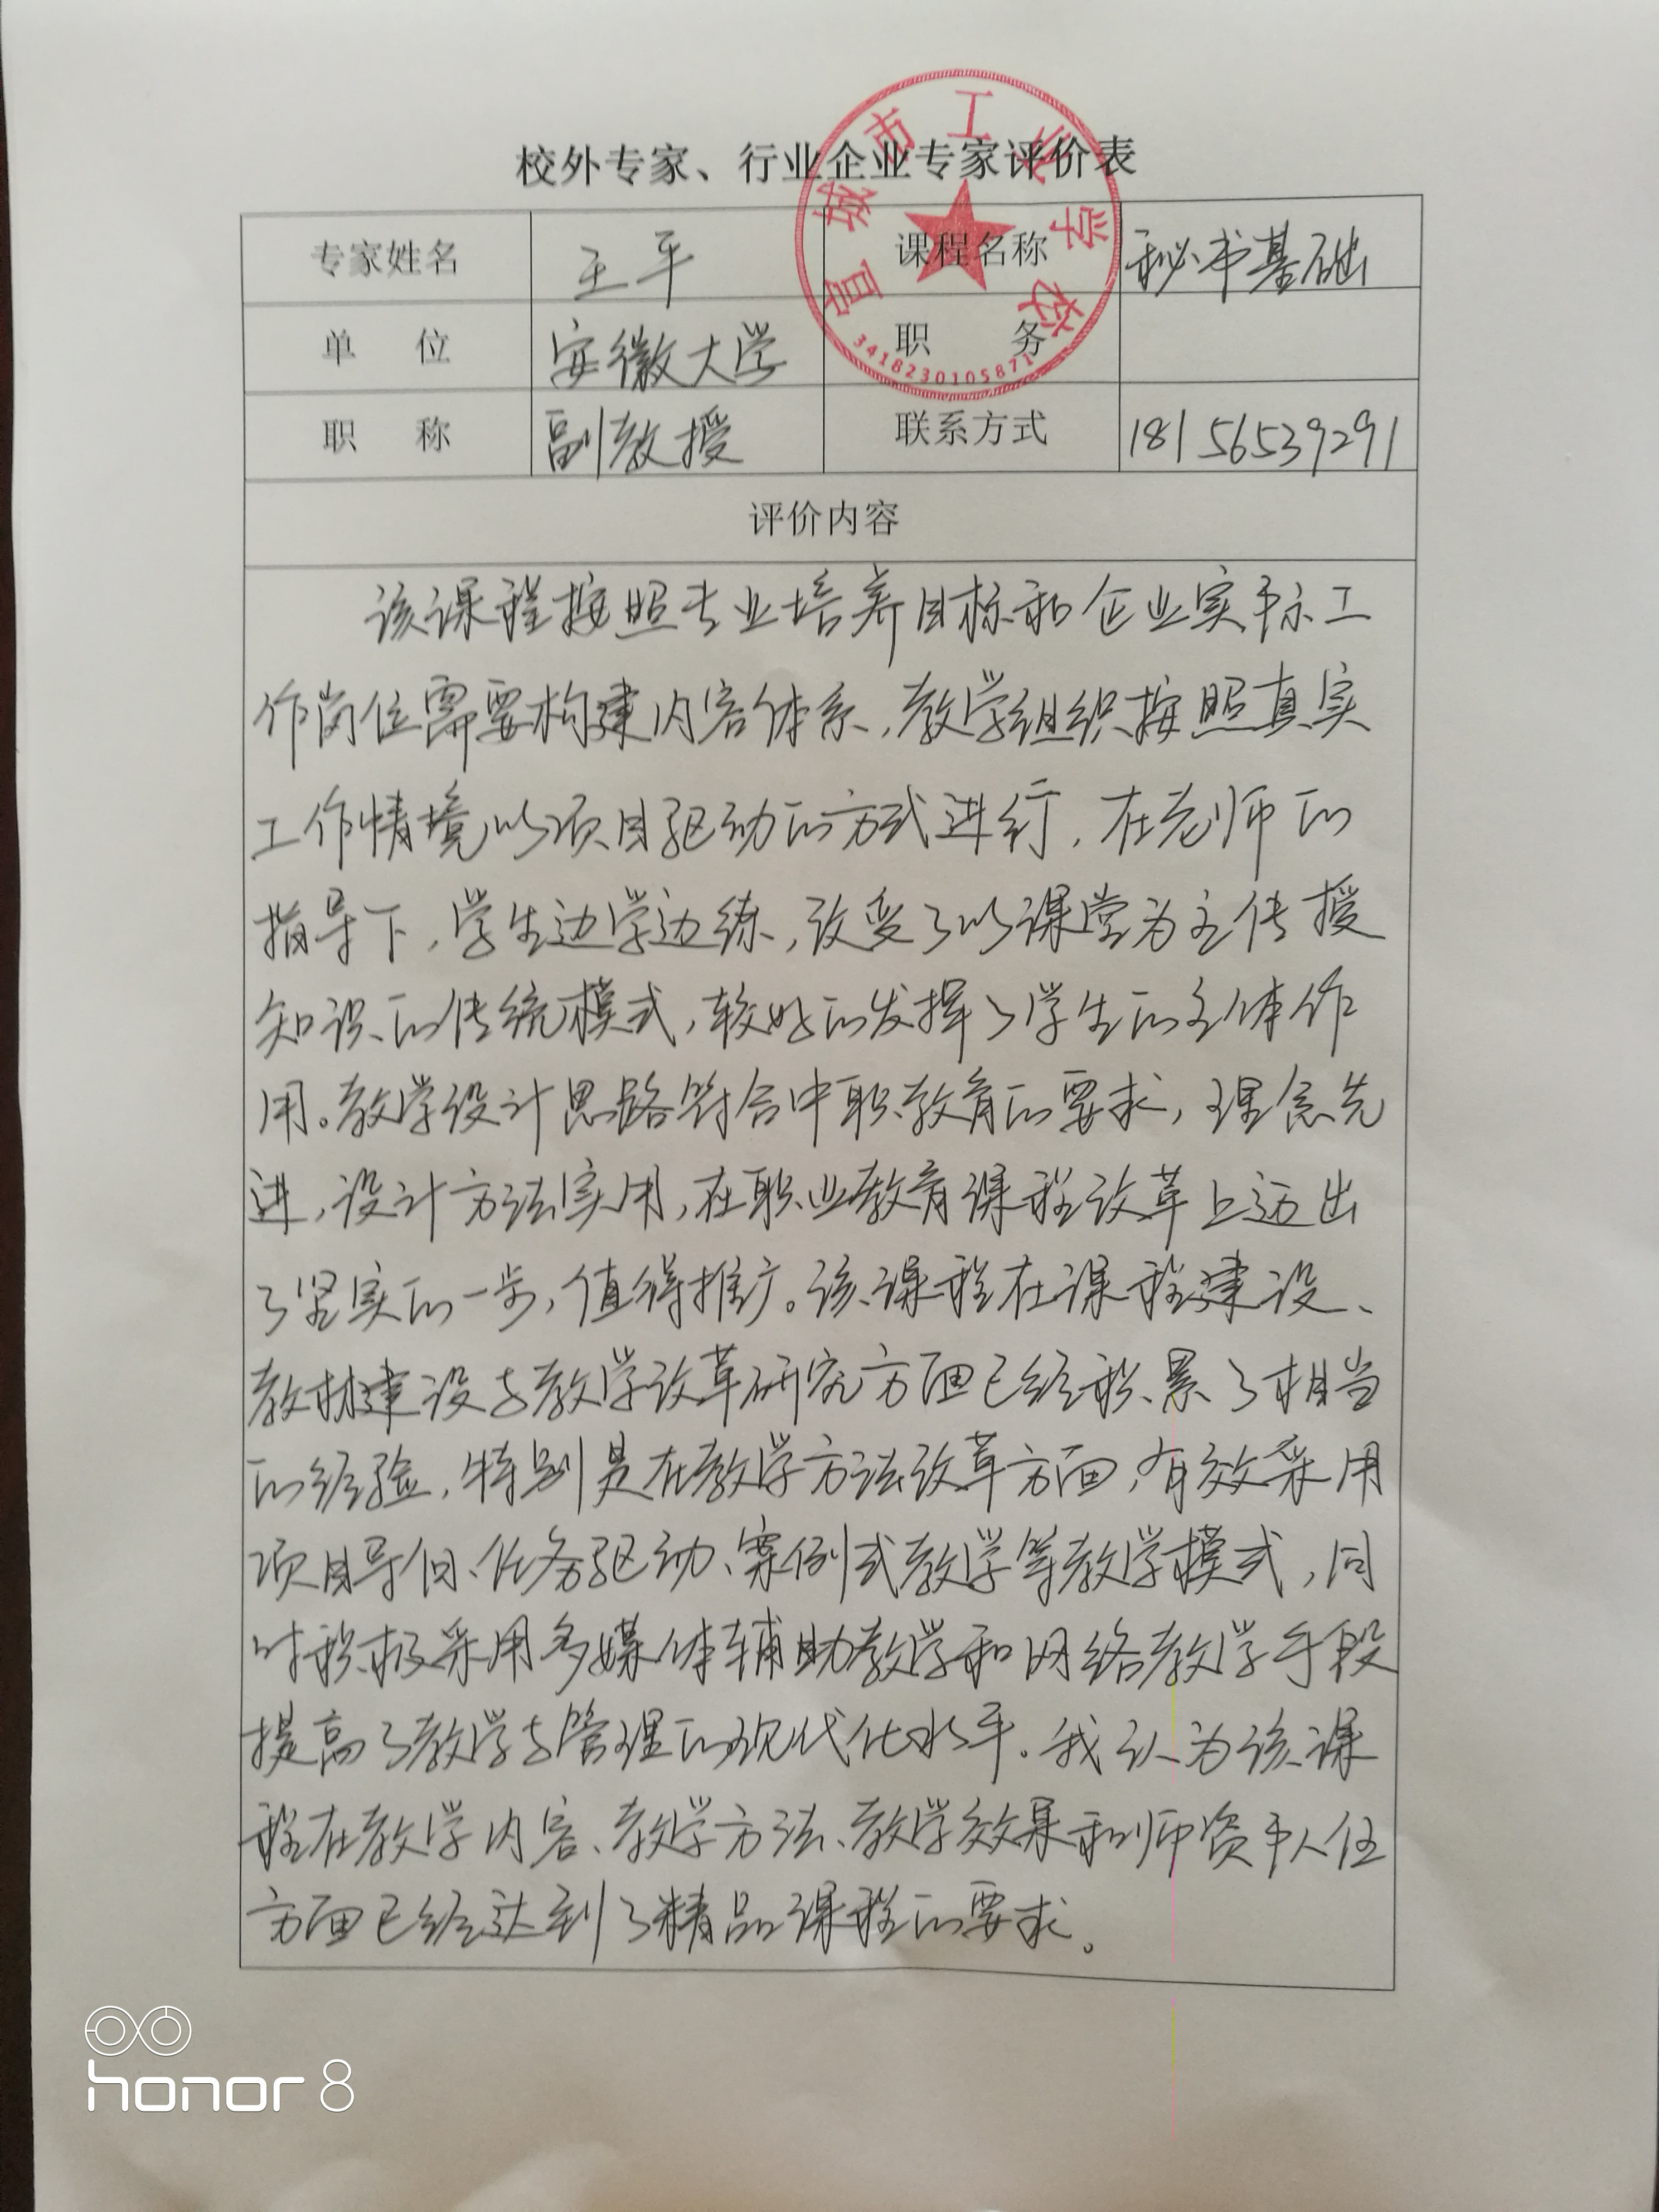 校外专家、行业企业专家评价表
宣城市工业学校
3418230105871
专家姓名 王平 课程名称 秘书基础
单 位 安徽大学 职 务
职 称 副教授 联系方式 18156539291
评价内容
该课程按照专业培养目标和企业实际工
作岗位需要构建内容体系,教学组织按照真实
工作情境以项目驱动的方式进行,在老师的
指导下,学生边学边练,改变了以课堂为主传授
知识的传统模式,较好的发挥了学生的主体作
用。教学设计思路符合中职教育的要求,理念先
进,设计方法实用,在职业教育课程改革上迈出
了坚实的一步,值得推广。该课程在课程建设、
教材建设与教学改革研究方面已经积累了相当
的经验,特别是在教学方法改革方面,有效采用
项目导向、任务驱动、案例式教学等教学模式,同
时积极采用多媒体辅助教学和网络教学手段
提高了教学与管理的现代化水平。我认为该课
程在教学内容、教学方法、教学效果和师资队伍
方面已经达到了精品课程的要求。
honor 8